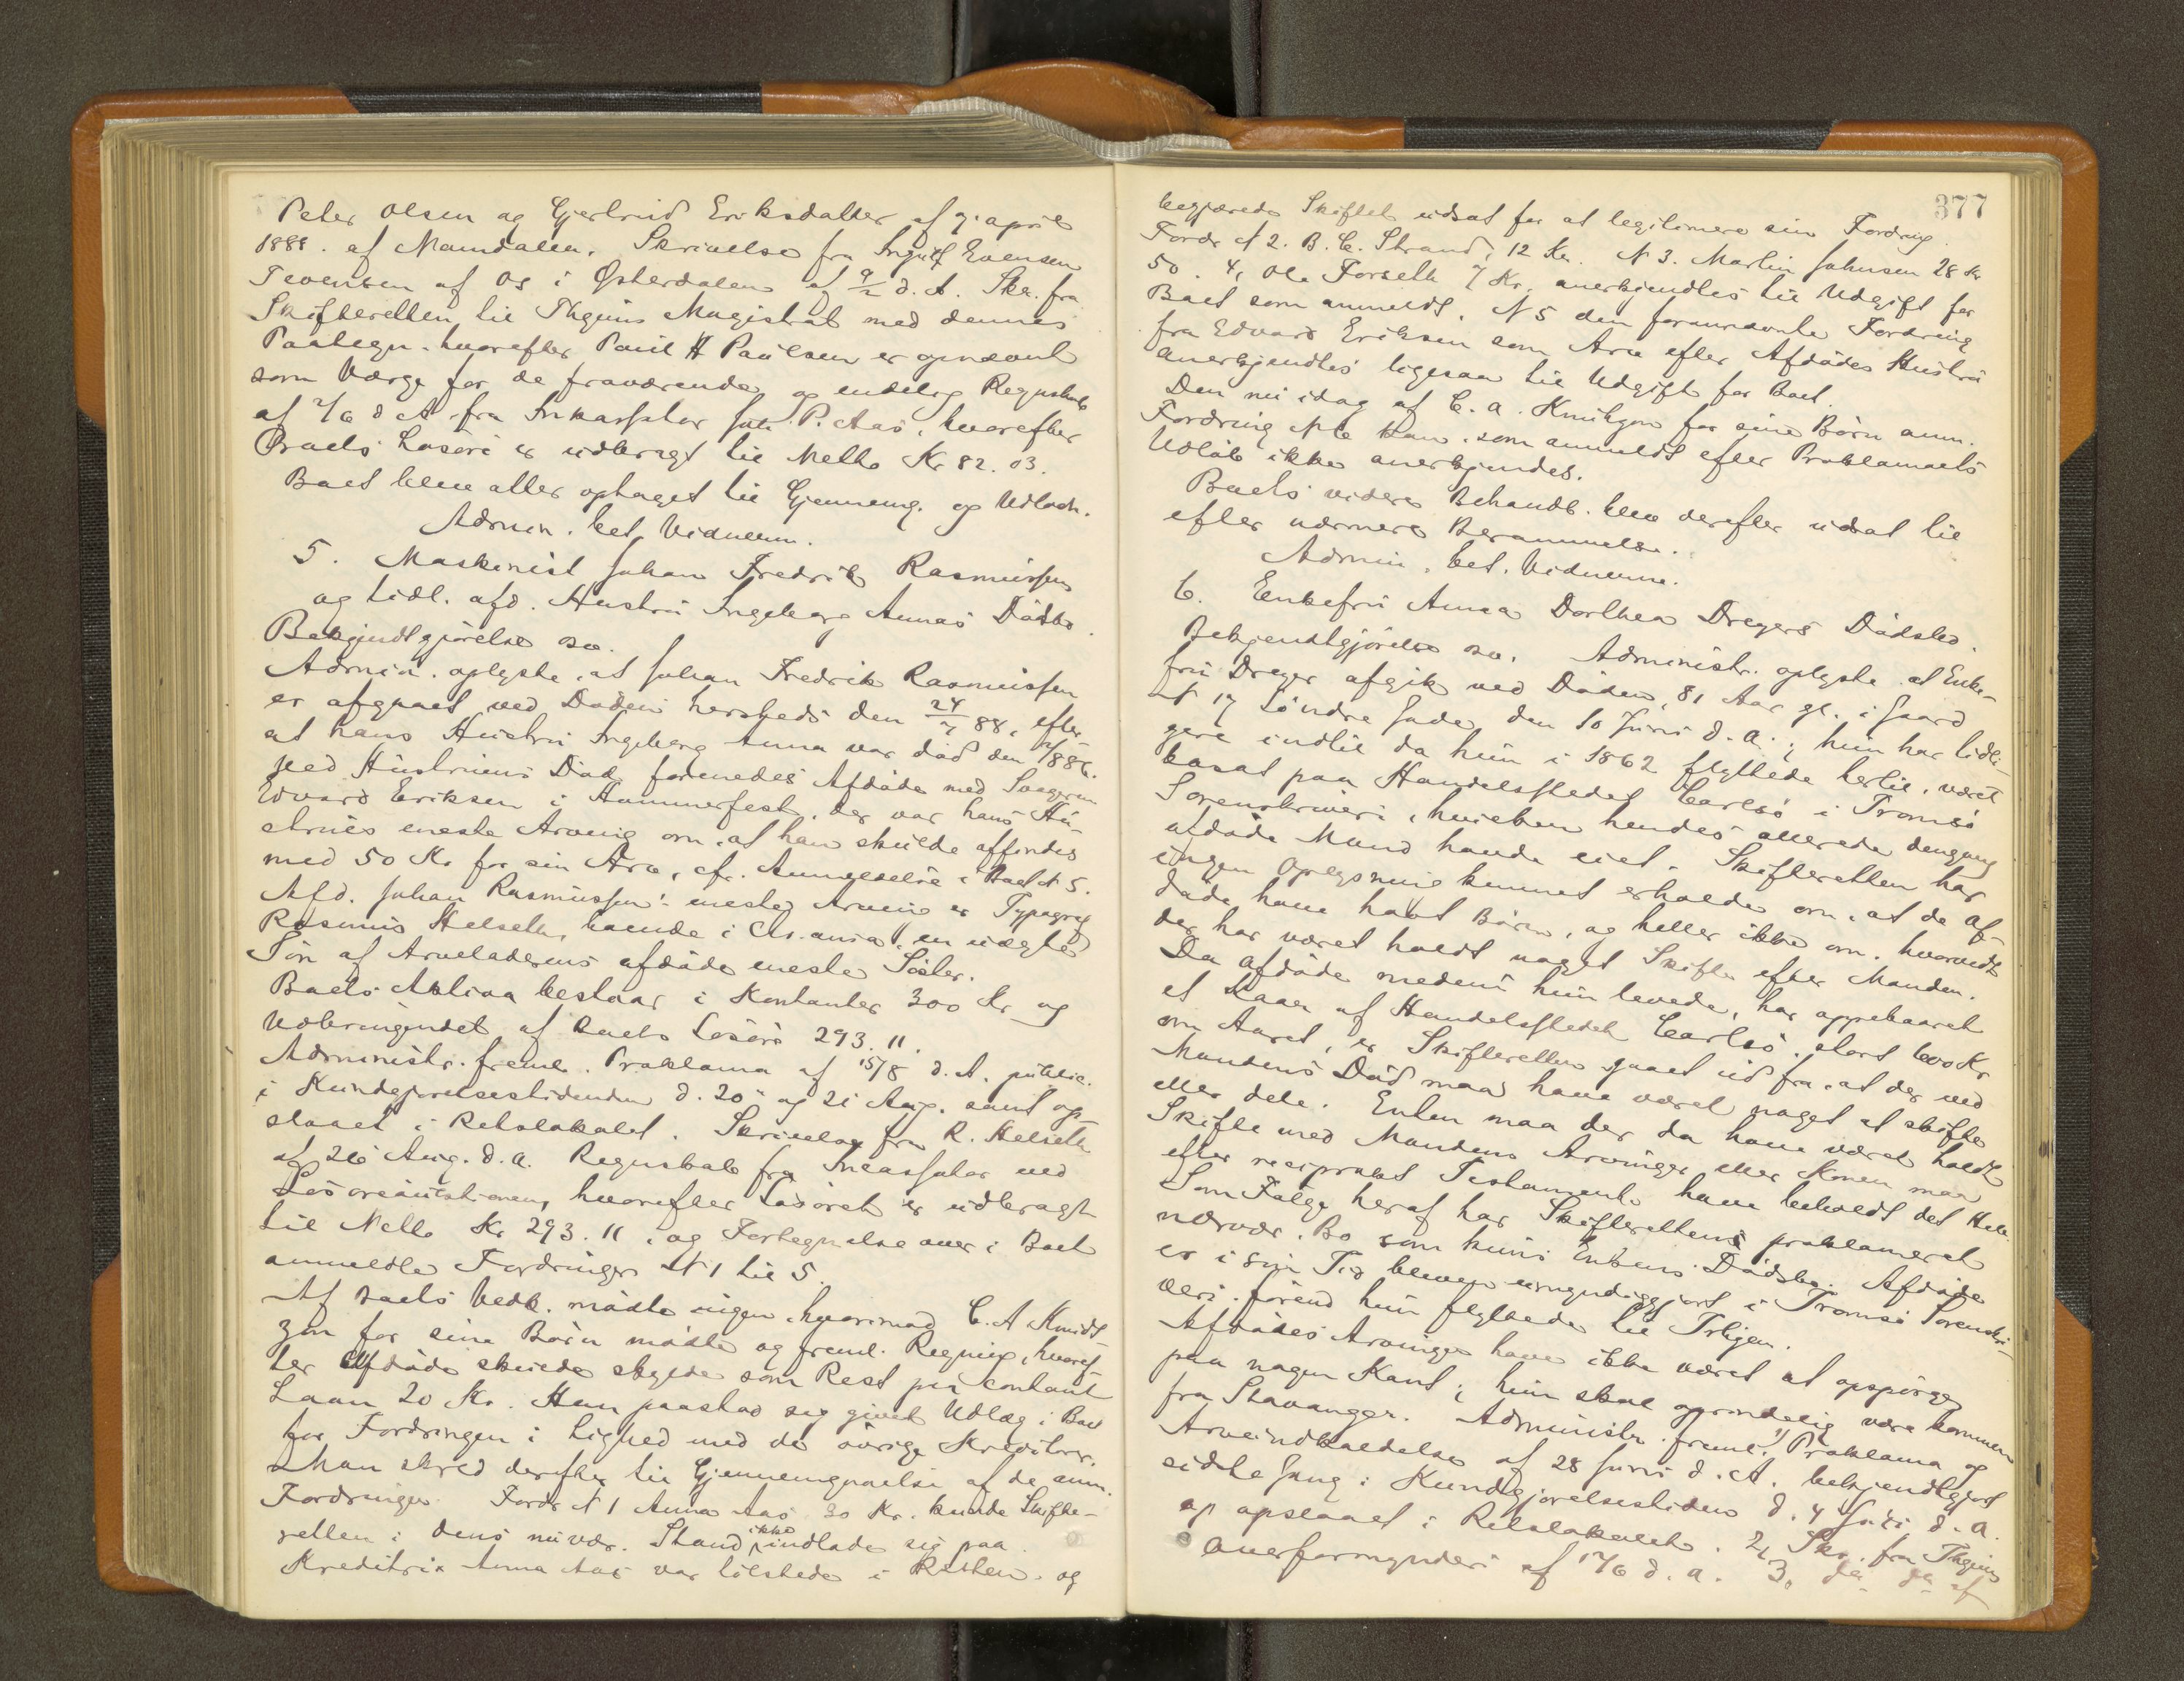 Peter Olsen og Gjertrud Eriksdatter af 7 april
1888. af Mandalen. Skrivelse fra Ingulf Evensen
Tevensen af Os i Østerdalen af 9/2 d. A. Skr. fra
Skifteretten til Thjems Magistrat med dennes
Paategn. hvorefter Paul H Paulsen er opnævnt
som Værge for de fraværende og endelig Regnskab
af 2/6 d A fra Inkassator Joh. P. Aas, hvorefter
Boets Løsøre er udbragt til Netto Kr 82.03.
Boet blev atter optaget til Gjennemg. og Udlodn.
Admin. bet. Vidnerne.
5. Maskinist Johan Fredrik Rasmussen
og tidl. afd. Hustru Ingeborg Annas Dødsbo.
Bekjendtgjørelse sv.
Admin. oplyste, at Johan Fredrik Rasmussen
er afgaaet ved Døden hersteds den 24/7 88, efter-
at hans Hustru Ingeborg Anna var død den 1886.
Ved Hustruens Død forenedes Afdøde med Svogeren
Edvard Eriksen i Hammerfest, der var hans Hu-
strues eneste Arving om, at han skulde affindes
med 50 Kr for sin Arv, cfr. Anmeldelse i Boet N 5.
Afd. Johan Rasmussens eneste Arving er Typograf
Rasmus Helseth, boende i Chr.ania, en uægte
Søn af Arveladerens afdøde eneste Søster.
Boets Aktiva bestaar i Kontanter 300 Kr og
Udbringendet af Boets Løsøre 293.11.
Administr. freml. Proklama af 15/8 d. A. public.
i Kundgjørelsestidenden d. 20 og 21 Aug. samt op-
slaaet i Retslokalet. Skrivelse fra R. Helseth
af 26 Aug. d. A. Regnskab fra Incassator ved
Løsøreauktionen, hvorefter Løsøret er udbragt
til Netto Kr 293.11, og Fortegnelse over i Boet
anmeldte Fordringer N 1 til 5.
Af Boets Vedk. mødte ingen, hvorimod C. A Knudt
zon for sine Børn mødte og freml. Regning, hvoref-
ter Afdøde skulde skylde som Rest paa contant
Laan 20 Kr. Han paastod sig givet Udlæg i Boet
for Fordringen i Lighed med de øvrige Kreditorer.
Man skred derefter til Gjennemgaaelse af de anm.
Fordringer. Fordr N 1 Anna Aas 30 Kr. kunde Skifte-
retten i dens nuvær. Stand ikke indlade sig paa.
Kreditrix Anna Aas var tilstede i Retten og
377
begjærede Skiftet udsat for at legitimere sin Fordring.
Fordr N 2. B. C. Strand, 12 Kr. N 3. Martin Johnsen 28 Kr
50. 4, Ole Forseth 7 Kr. anerkjendtes til Udgift for
Boet som anmeldt. N 5 den forannævnte Fordring
fra Edvard Eriksen som Arv efter Afdødes Hustru
anerkjendtes ligesaa til Udgift for Boet.
Den nu idag af C. A. Knudtzon for sine Børn anm.
Fordring ikke kan, som anmeldt efter Proklamaets
Udløb ikke anerkjendes.
Boets videre Behandl. blev derefter udsat til
efter nærmere Berammelse.
Admin. bet. Vidnerne.
6. Enkefru Anna Dorthea Dreyers Dødsbo.
Bekjendtgjørelse sv. Administr. oplyste at Enke-
fru Dreyer afgik ved Døden, 81 Aar gl. i Gaard
N 17 Søndre Gade, den 10 Juni d. A.; hun har tidli-
gere indtil da hun i 1862 flyttede hertil, været
bosat paa Handelsstedet Carlsø i Tromsø
Sorenskriveri, hvilken hendes allerede dengang
afdøde Mand havde eiet. Skifteretten har
ingen Oplysning kunnet erholde om, at de af-
døde have havt Børn, og heller ikke om, hvorvidt
der har været holdt noget Skifte efter Manden.
Da Afdøde medens hun levede, har oppebaaret
et Laan af Handelsstedet Carlsø, stort 600 Kr
om Aaret, er Skifteretten gaaet ud fra, at der ved
Mandens Død maa have været noget at skifte
eller dele. Enten maa der da have været holdt
Skifte med Mandens Arvinger eller Konen maa
efter reciprokt Testamente have beholdt det Hele.
Som Følge heraf har Skifteretten proklameret
nærvær. Bo som kun Enkens Dødsbo. Afdøde
er i sin Tid bleven umyndiggjort i Tromsø Sorenskri-
veri førend hun flyttede til Trhjem.
Afdødes Arvinger have ikke været at opspørge
paa nogen Kant; hun skal oprindelig være kommen
fra Stavanger. Administr. freml. 1) Proklama og
Arveindkaldelse af 28 Juni d. A. bekjendtgjort
sidste Gang i Kundgjørelsestiden d. 4 Juli d. A.
og opslaaet i Retslokalet. 2, Skr. fra Thjems
Overformynderi af 17/6 d. A. 3. do do af